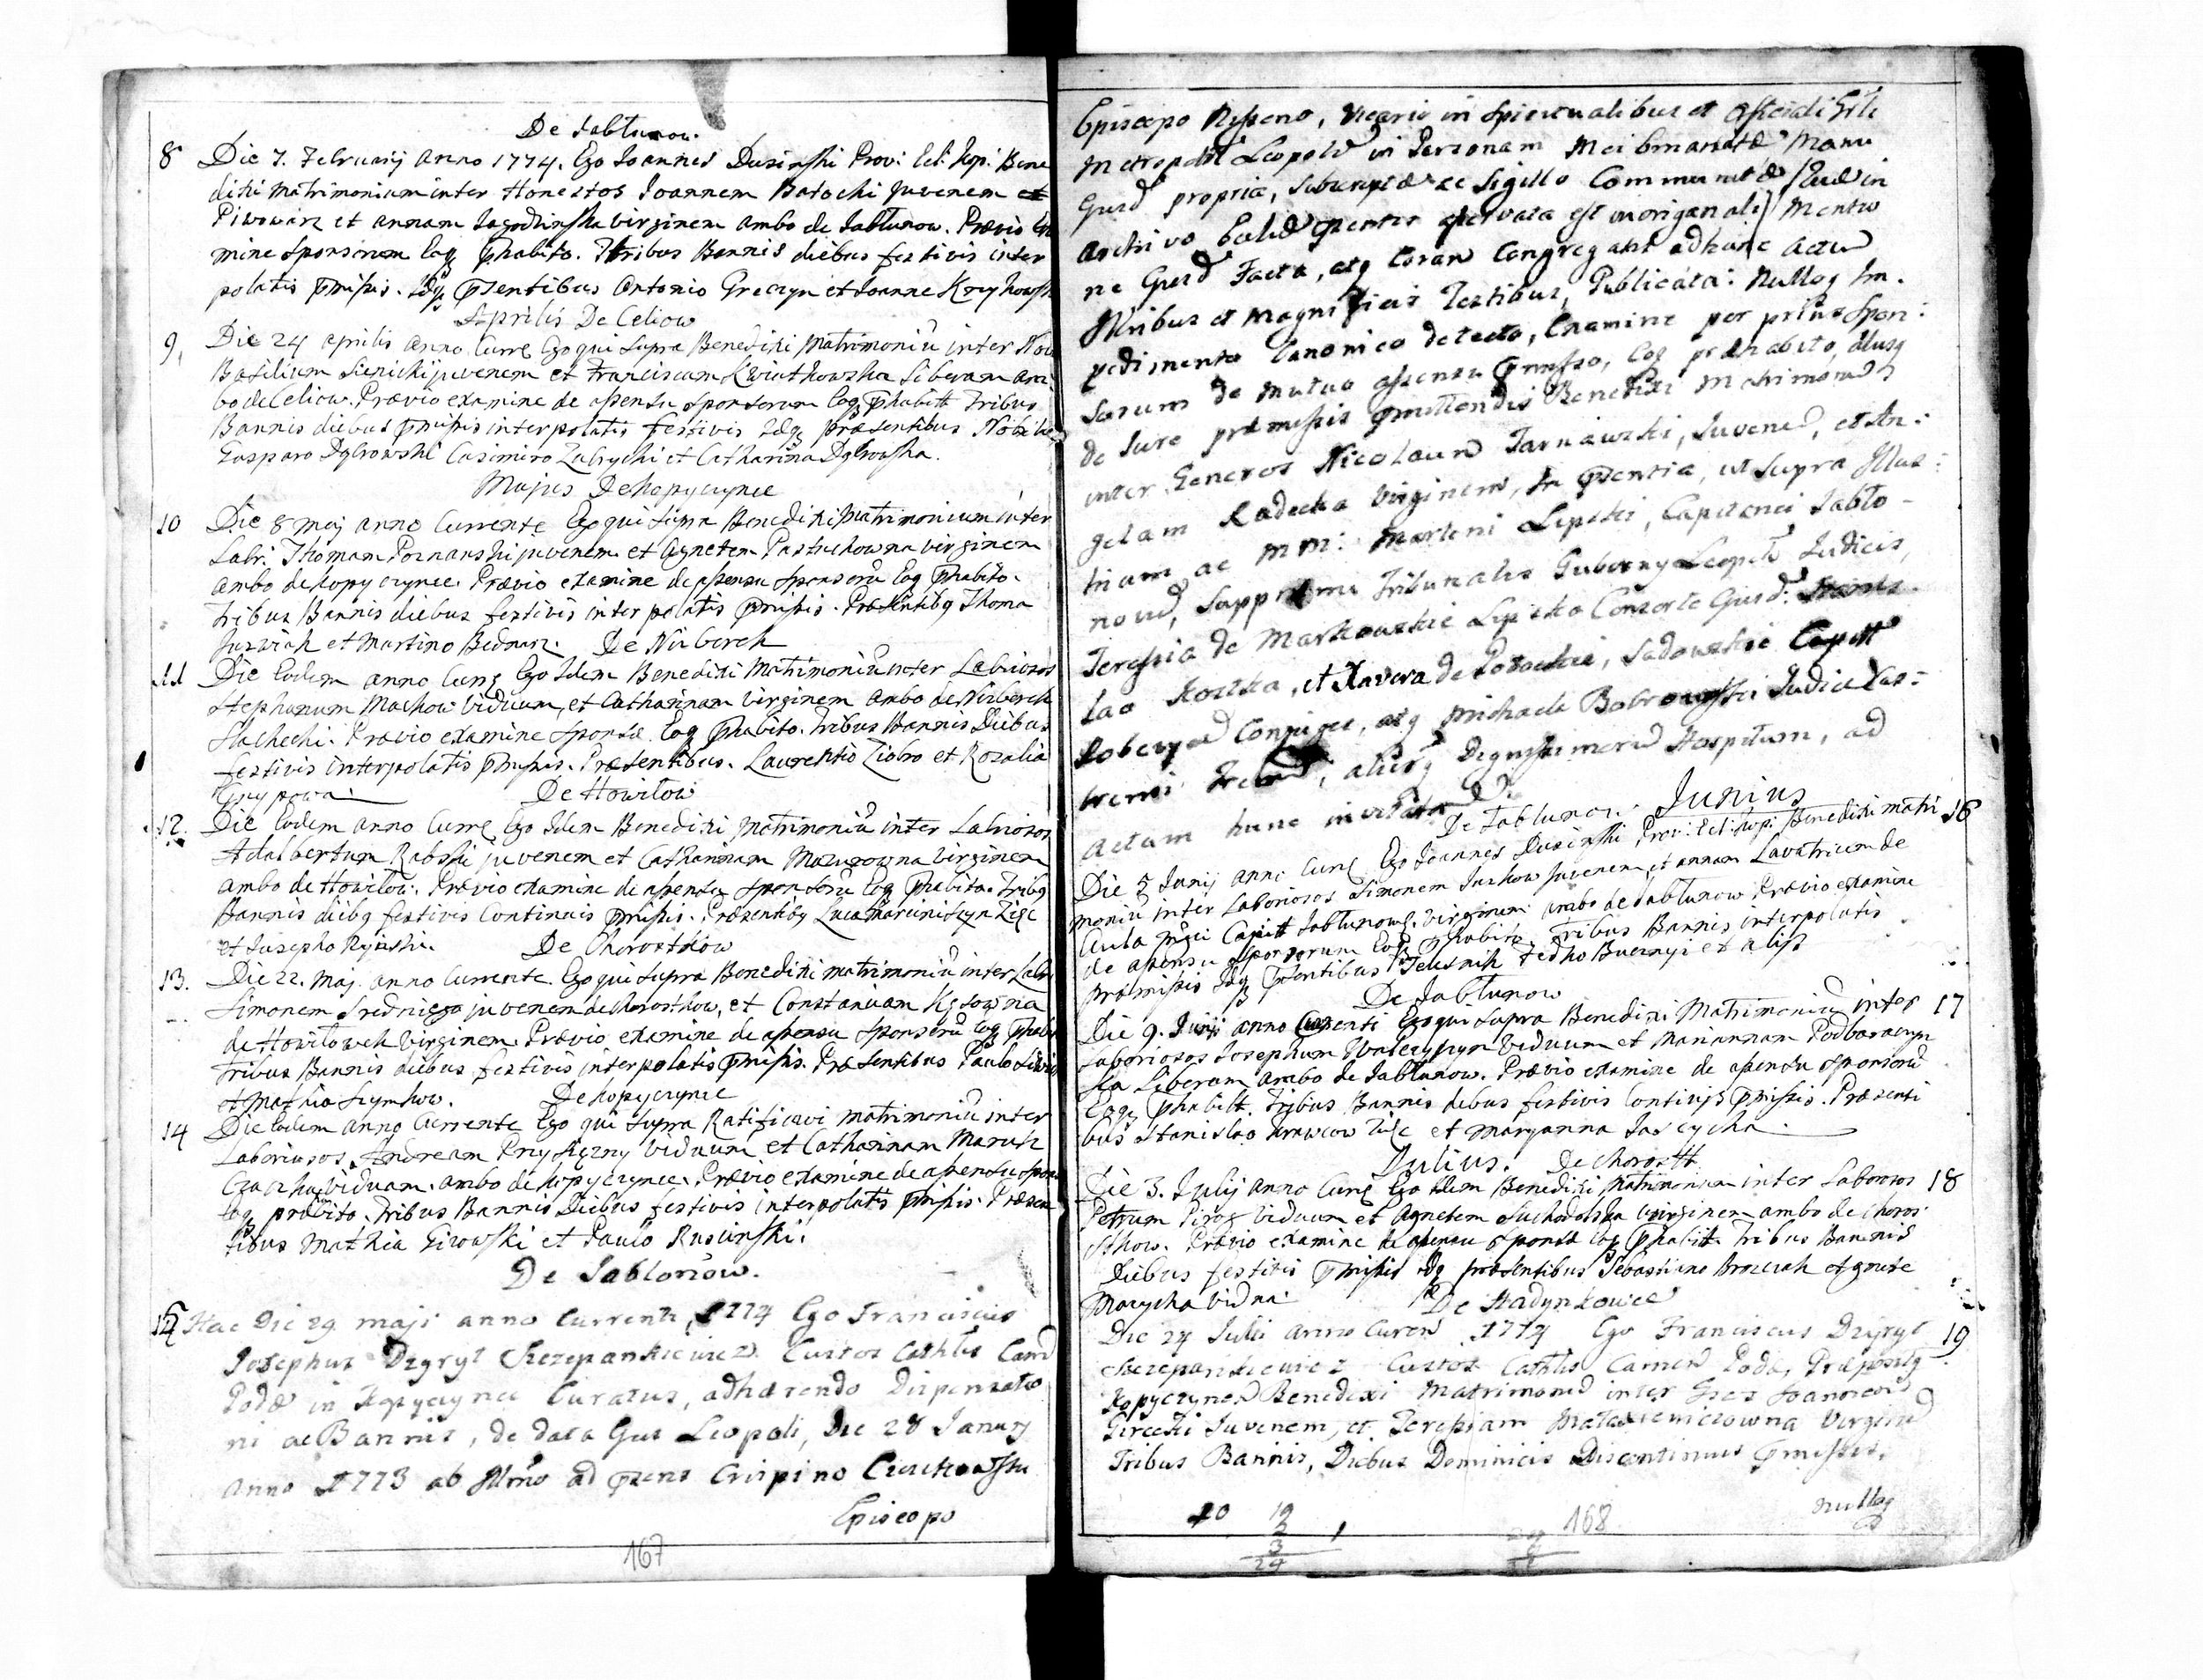 De Jabłunow.
8 Die 7. Februarij Anno 1774. Ego Joannes Dusinski Prov: Ecl: Kop: Bene
dixi Matrimonium inter Honestos Joannem Batocki juvenem et
Piwowarz et Annam Jagodzinska virginem ambo de Jabłunow. Prævio Exa
mine Sponsorum Coq phabito. Tribus Bannis diebus festivis inter
polatis pmissis. Idq psentibus Antonio Greczyn et Joanne Krzykowsk
Aprilis De Celiow
9, Die 24 Aprilis Anno Curre Ego qui supra Benedixi Matrimoniu inter Nob
Basilium Sienicki juvenem et Franciscam Kwiatkowska Liberam am
bo de Celiow. Prævio examine de assensu Sponsorum Coq phabitt Tribus
Bannis diebus pmissis interpolatis festivis Idq præsentibus Nobili
Gasparo Dąbrowski Casimiro Zabrycki et Catharina Dąbrowska.
Majus De Kopyczynce
10 Die 8 Maj Anno Currente Ego qui supra Benedixi Matrimonium inter
Labr: Thomam Poznanski juvenem et Agnetem Pastuchowna virginem
ambo de Kopyczynce. Prævio examine de assensu Sponsorū Coq phabito.
Tribus Bannis diebus festivis interpolatis pmissis. Præsentibq Thoma
Juzwiak et Martino Bednarz. De Niżberek
11 Die Eodem anno Curre Ego Idem Benedixi Matrimoniū inter Laboriosos
Stephanum Machow viduum, et Catharinam Virginem ambo de Niżberek
Slachecki. Prævio examine Sponsæ Coq phabito. Tribus Bannis Diebus
festivis interpolatis pmissis. Præsentibus. Laurentio Ziobro et Rozalia
De Howilow
12. Die Eodem anno Curre Ego Idem Benedixi Matrimoniū inter Laboriosos
Adalbertum Rabski juvenem et Catharinam Mazurowna Virginem
ambo de Howilow. Prævio examine de assensu Sponsorū Coq phabito. Tribq
Bannis diebq festivis Continuis pmissis. Præsentibq Luca Marciniszyn Zięc
et Josepho Ryinski. De Chorostkow
13. Die 22. Maj anno Currente Ego qui supra Benedixi matrimoniū inter Labr
Simonem Sredniego juvenem de Chorostkow, et Constantiam Kęsowna
de Howilowek Virginem. Prævio examine de assensu Sponsorū Coq phabi
Tribus Bannis diebus festivis interpolatis pmissis. Præsentibus Paulo
et Mathia Szymkow. De Kopyczynce
14 Die Eodem anno Currente Ego qui supra Ratificavi matrimoniū inter
Laboriosos Andream Przysięzny Viduum et Catharinam Marusz
viduam. ambo de Kopyczynce. Prævio examine de assensu Spon
Coq prabito. Tribus Bannis Diebus festivis interpolatis pmissis. Præsen
tibus Mathia Girowski et Paulo Rusinski.
De Jablonow.
15 Hac Die 29 maji anno Currenti, 1774 Ego Franciscus
Josephus Dzgryl Szczepankiewicz Custos Cathlis Cam
Podo in Kopyczynce Curatus, adhærendo Dispensatio
ni ac Bannis, de data Gus Leopoli, Die 28 Januarij
Anno 1773 ab Illmo ad psens Crispino Cieszkowski
Episcopo
167
Episcopo , Vicario in Spiritualibus et Officiali Gnli
Metropolit Leopold in Personam Mei Emanata Manu
Gusd propria, Subscripta ac Sigillo Communita /Quæ in
Archivo psenter asservata est in originali/ Mentio
ne Gusd Facta, atq Coram Congregatis ad hunc Actu
Illribus et Magnificis Testibus, Publicata: Nulloq Im.
pedimento Canonico detecto, Examine per prius Spon:
sorum de mutuo assensu pmisso, Coq præhabito, aliisq
de Jure præmissis pmittendis Benedixi Matrimoniū
inter Generos Nicolaum Tarnawski, Juvene, et An:
gelam Radecka Virginem, In psentia, ut supra Illus:
trium ac MM: Martini Lipski, Capitanei Jabło-
now, Supprem Tribunalis Guberny Leopol Judicis,
Teressia de Markowskie Lipska Consorte Gusd.
lao Kostka, et Xavera de Potockie, Sadowskie Capitt
Conjuge, atq Michaele Bobrowski Judice Cas:
trensi , aliisq Dignissimorū Hospitum, ad
actum hunc invitatorū.
Junius
De Jabłunow.
Die 5 Junij anno Curre Ego Joannes Dusinski Prov: Ecl: Kop: Benedixi matri 16
moniū inter Laboriosos Simonem Juzkow juvenem et annam Lavatricem de
Aula Capitt Jablunow Virginem ambo de Jabłunow Prævio examine
de assensu Sponsorum Coq phabito. Tribus Bannis interpolatis
præmissis Idq psentibus Fedko et aliis
De Jabłunow
Die 9. Junij anno Currenti Ego qui supra Benedixi Matrimoniū inter 17
Laboriosos Josephum Viduum et Mariannam
Liberam ambo de Jabłunow. Prævio examine de assensu Sponsorū
Coq phabitt. Tribus Bannis diebus festivis Continuis pmissis. Præsenti
bus Stanislao Krawcow Zięc et Maryanna
Julius. De Chorostk
Die 3. Julij anno Curre Ego Idem Benedixi Matrimonium inter Laboriosos 18
Petrum Pirog Viduum et Agnetem Suchodolska virginem ambo de Choros
tkow. Prævio examine de assensu Sponsæ Coq phabitt. Tribus Bannis
Diebus festivis pmissis Idq præsentibus Sebastiano et
Vidua. De Hadynkowce
Die 24 Julii anno Curen 1774 Ego Franciscus Dzgryl 19
Szczepankiewicz Custos Cathlis Camen Podo, Præpositq
Kopyczynen Benedixi Matrimoniū inter Joannem
Juvenem, et Teressiam Virgine
Tribus Bannis, Diebus Dominicis Discontinuis pmissis,
nulloq
168